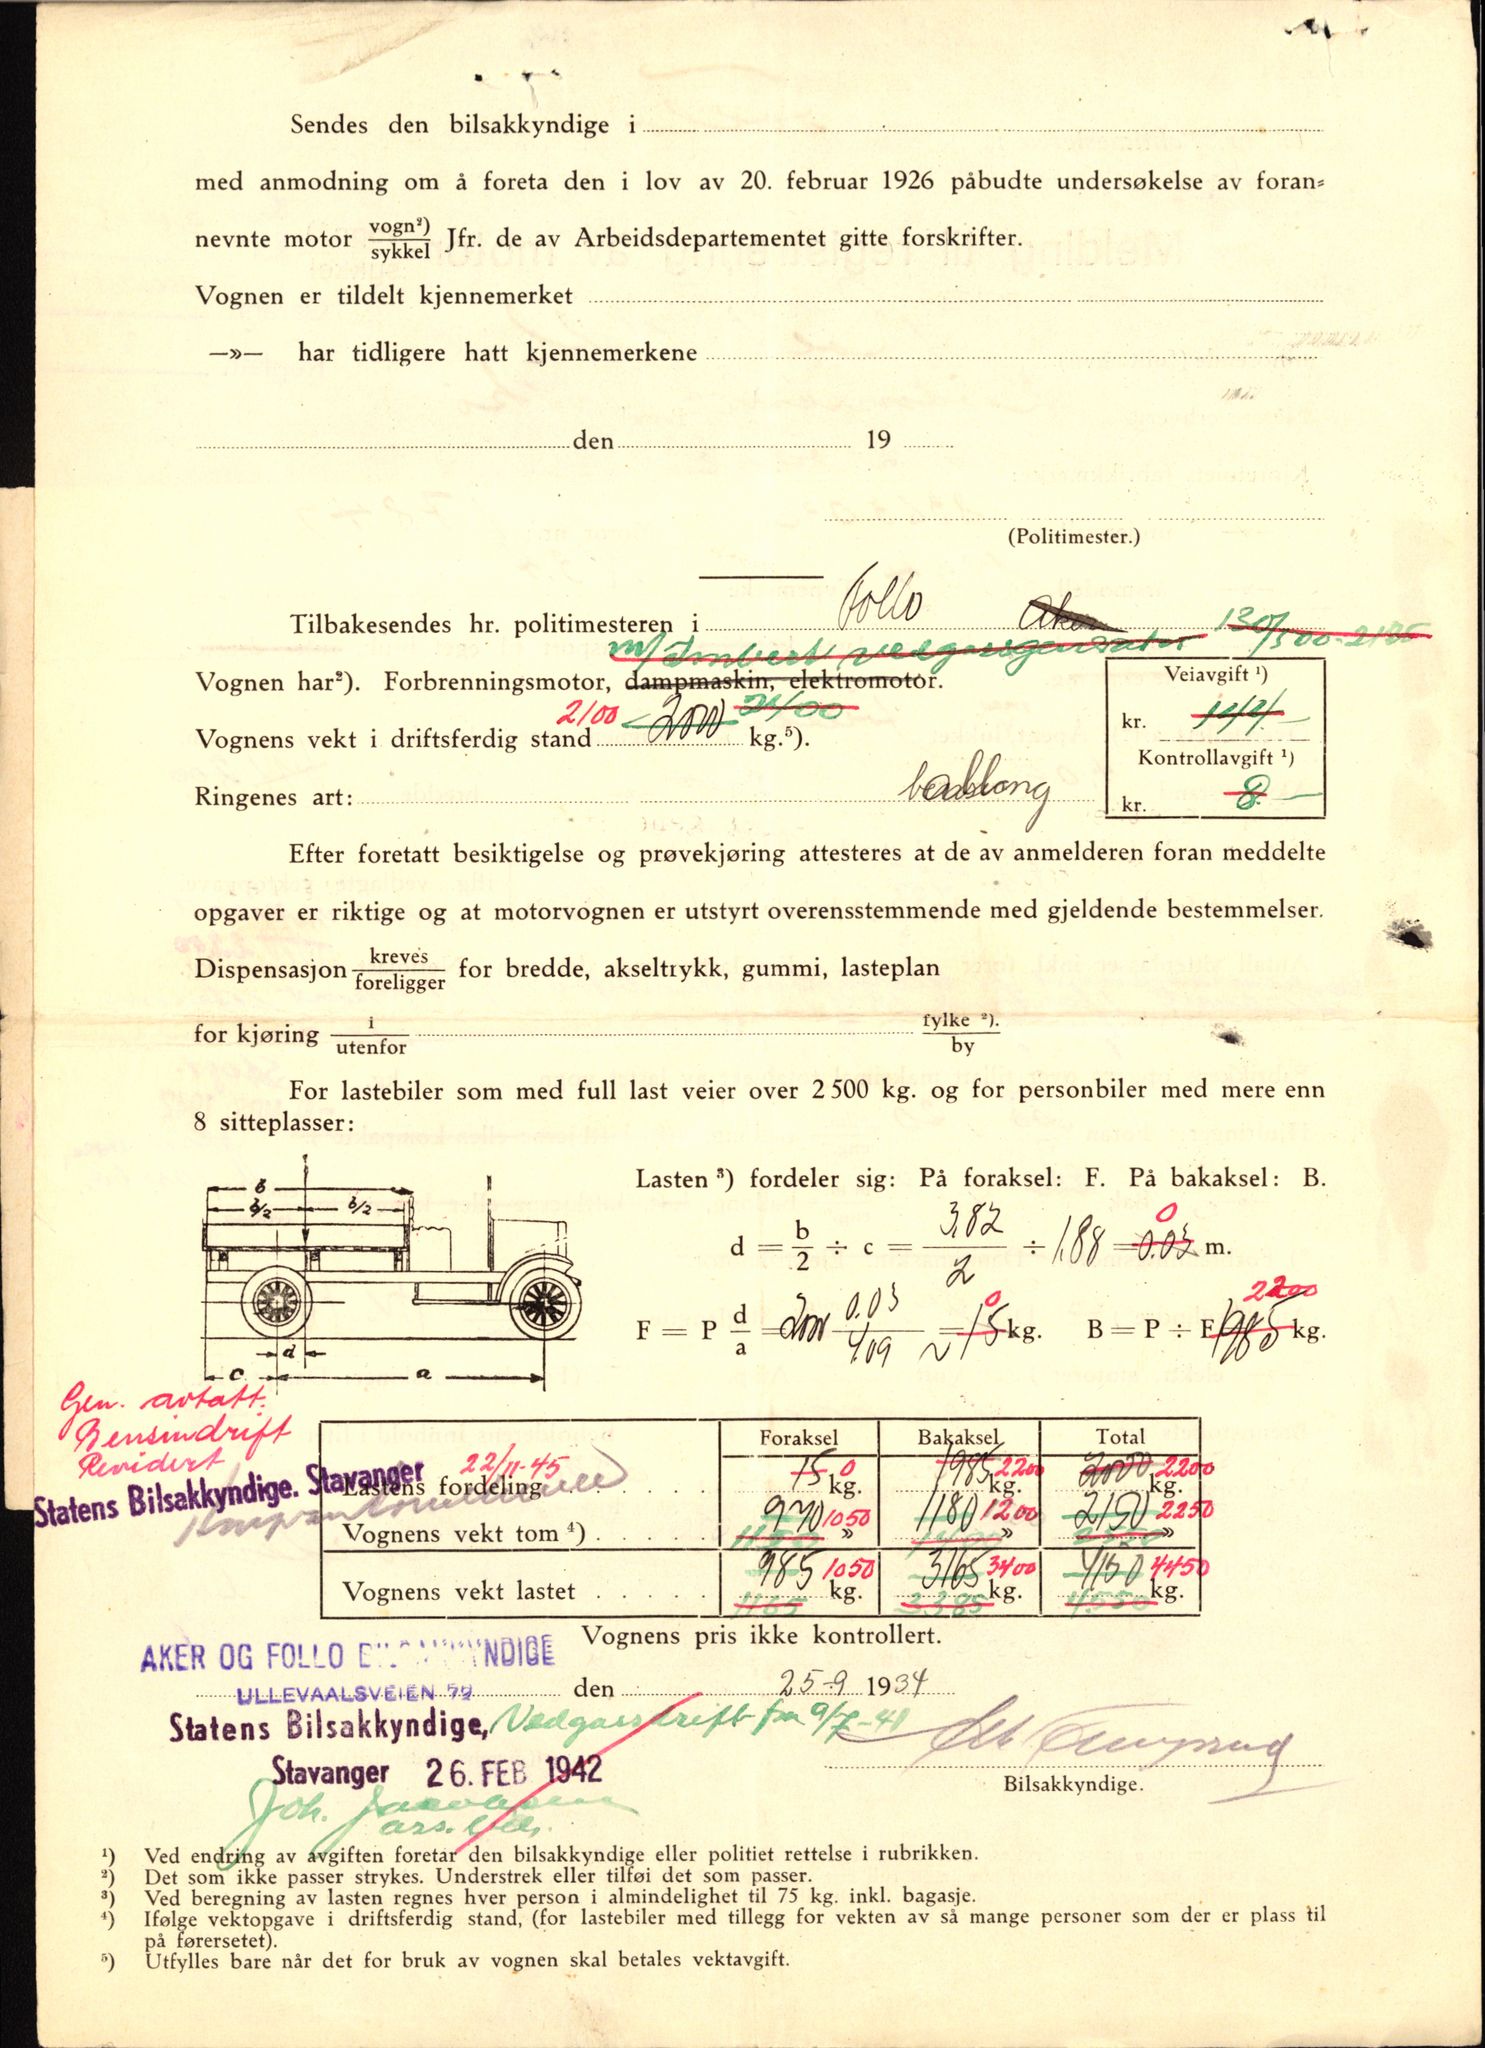 Sendes den bilsakkyndige i
med anmodning om å foreta den i lov av 20. februar 1926 påbudte undersøkelse av foran=
nevnte motor vogn²)/sykkel Jfr. de av Arbeidsdepartementet gitte forskrifter.
Vognen er tildelt kjennemerket
—»— har tidligere hatt kjennemerkene
den 19
(Politimester.)
Tilbakesendes hr. politimesteren i Follo Aker
m/Imbert vedgassgenerator 130/500-2185
Vognen har²). Forbrenningsmotor, dampmaskin, elektromotor.
Veiavgift ¹)
2100 2000 2100
Vognens vekt i driftsferdig stand kg.⁵).
kr.
Kontrollavgift ¹)
Ringenes art:
kr. 8.—
Efter foretatt besiktigelse og prøvekjøring attesteres at de av anmelderen foran meddelte
opgaver er riktige og at motorvognen er utstyrt overensstemmende med gjeldende bestemmelser.
Dispensasjon kreves/foreligger for bredde, akseltrykk, gummi, lasteplan
for kjøring i/utenfor fylke ²)./by
For lastebiler som med full last veier over 2 500 kg. og for personbiler med mere enn
8 sitteplasser:
Lasten ³) fordeler sig: På foraksel: F. På bakaksel: B.
B
b/2 b/2
d = b/2 ÷ c = 3,82/2 ÷ 1,88 = 0.03 0 m.
F = P d/a = 2000 0.03/4,09 = ~15 0 kg. B = P ÷ F 1985 2200 kg.
d
c a
Gen. avtatt.
Bensindrift
Revidert
22/11-45
Statens Bilsakkyndige. Stavanger
Foraksel Bakaksel Total
Lastens fordeling 15 0 kg. 1985 2200 kg. 2000 2200 kg.
Vognens vekt tom ⁴) 970 1050 » 1180 1200 » 2150 2250 »
Vognens vekt lastet 985 1050 kg. 3165 3400 kg. 4150 4450 kg.
1165 3385 4550
Vognens pris ikke kontrollert.
AKER OG FOLLO BILSAKKYNDIGE
ULLEVAALSVEIEN 59 den 25-9 1934
Statens Bilsakkyndige, Vedgassdrift fra 9/7-41
Stavanger 26. FEB 1942
Joh. Jacobsen
ass.
Bilsakkyndige.
¹) Ved endring av avgiften foretar den bilsakkyndige eller politiet rettelse i rubrikken.
²) Det som ikke passer strykes. Understrek eller tilføi det som passer.
³) Ved beregning av lasten regnes hver person i almindelighet til 75 kg. inkl. bagasje.
⁴) Ifølge vektopgave i driftsferdig stand, (for lastebiler med tillegg for vekten av så mange personer som der er plass til
på førersetet).
⁵) Utfylles bare når det for bruk av vognen skal betales vektavgift.